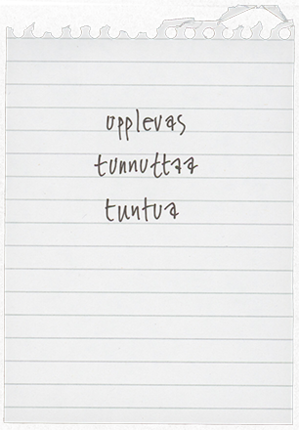 upplevas
tunnuttaa
tuntua